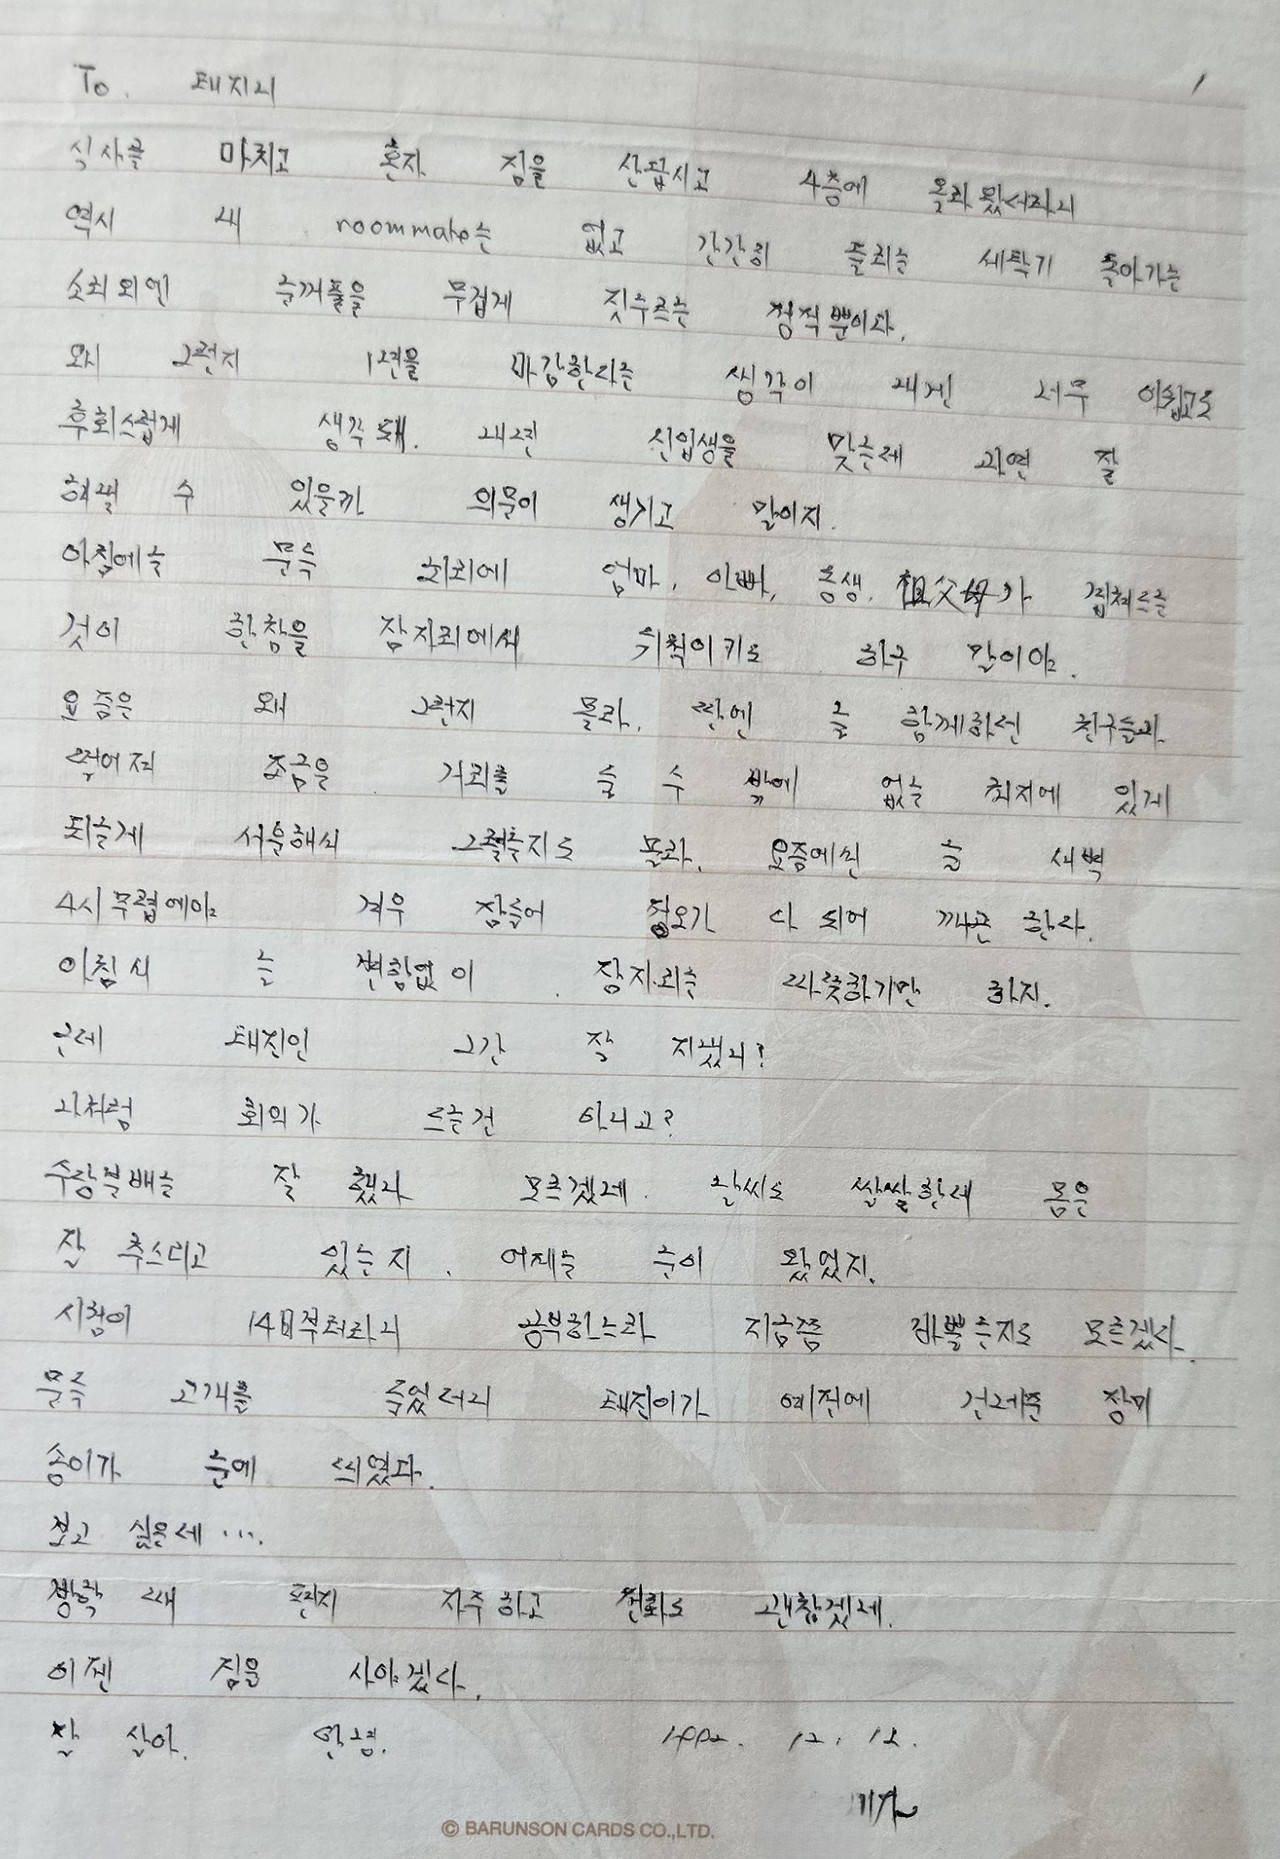 To. 태지니
식사를 마치고 혼자 짐을 산답시고 4층에 올라왔더라니
역시 내 roommate는 없고 간간히 들리는 세탁기 돌아가는
소리외엔 눈꺼풀을 무겁게 짓누르는 정적뿐이다.
왜 그런지 1년을 마감한다는 생각이 내겐 너무 아쉽고도
후회스럽게 생각돼. 내년 신입생을 맞는데 과연 잘
해낼 수 있을까 의문이 생기고 말이지.
아침에는 문득 뇌리에 엄마, 아빠, 동생, 祖父母가 겹쳐드는
것이 한참을 잠자리에서 뒤척이기도 하구 말이야.
요즘은 왜 그런지 몰라. 딴엔 늘 함께하던 친구들과
떨어져 조금은 거리를 둘 수 밖에 없는 처지에 있게
되는게 서운해서 그럴른지도 몰라. 요즘에선 늘 새벽
4시무렵에야 겨우 잠들어 정오가 다 되어 깨곤 한다.
아침시 늘 변함없이 잠자리는 따뜻하기만 하지.
근데 태진인 그간 잘 지냈니?
나처럼 회의가 드는건 아니고?
수강분배는 잘 했나 모르겠네. 날씨도 쌀쌀한데 몸은
잘 추스리고 있는지. 어제는 눈이 왔었지.
시험이 14日부터라니 공부하느라 지금쯤 바쁠른지도 모르겠다.
문득 고개를 들었더니 태진이가 예전에 건네준 장미
송이가 눈에 띄었다.
보고 싶은데 ….
방학 때 편지 자주하고 전화도 괜찮겠네.
이젠 짐을 싸야겠다.
잘 살아. 안녕. 1992. 12. 12.
© BARUNSON CARDS CO.,LTD.